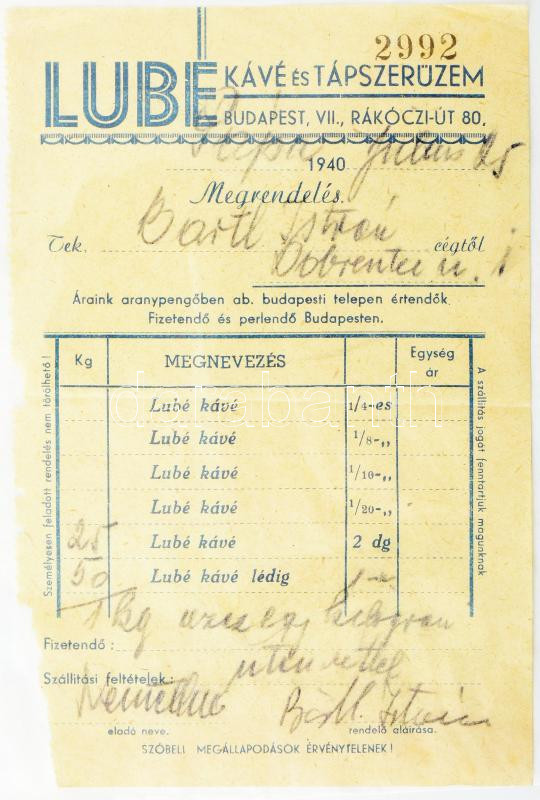 2992
LUBÉ KÁVÉ ÉS TÁPSZERÜZEM
BUDAPEST, VII., RÁKÓCZI-ÚT 80.
1940 Július 25
Megrendelés.
Tek. Bartl István cégtől
Döbrentei u.
Áraink aranypengőben ab. budapesti telepen értendők.
Fizetendő és perlendő Budapesten.
Személyesen feladott rendelés nem törölhető!
A szállítás jogát fenntartjuk magunknak
Kg MEGNEVEZÉS Egység ár
Lubé kávé 1/4-es
Lubé kávé 1/8-„
Lubé kávé 1/10-„
Lubé kávé 1/20-„
25 Lubé kávé 2 dg
50 Lubé kávé lédig
1 kg azaz egy
Fizetendő :
utánvéttel
Szállítási feltételek :
Bartl István
eladó neve. rendelő aláírása.
SZÓBELI MEGÁLLAPODÁSOK ÉRVÉNYTELENEK!
databanth